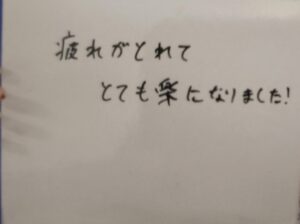 疲れがとれて
とても楽になりました!